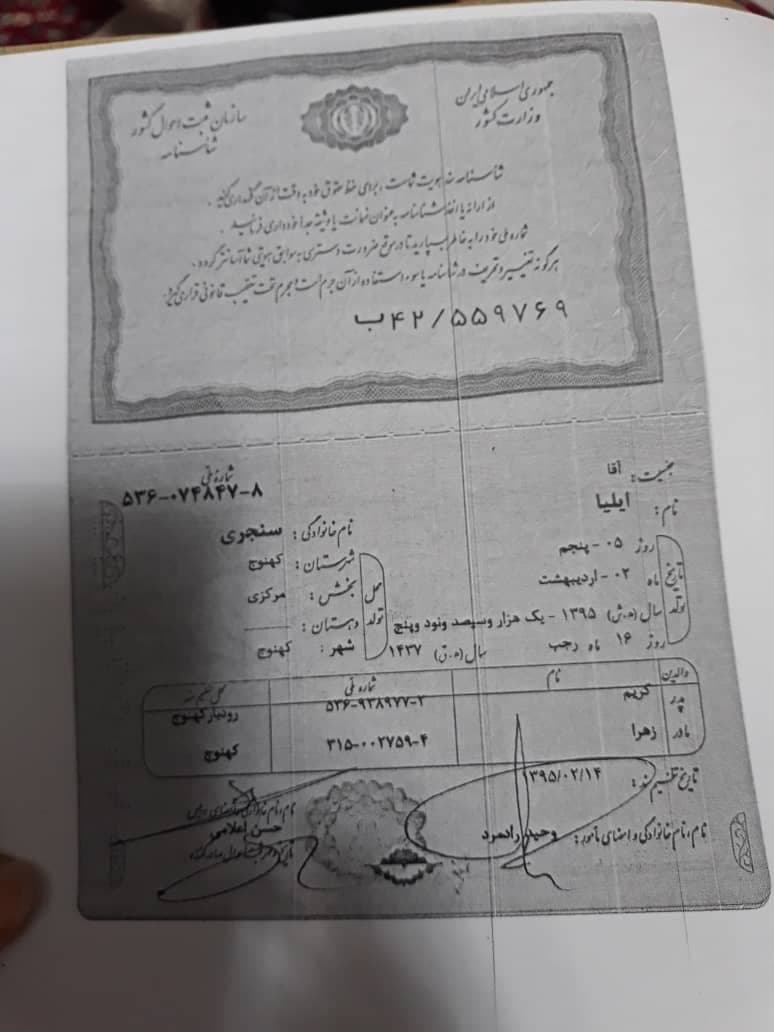 جمهوری اسلامی ایران
وزارت کشور
سازمان ثبت احوال کشور
شناسنامه
شناسنامه سند هویت شماست، برای حفظ حقوق خود به دقت از آن نگهداری کنید.
از ارائه یا اخذ شناسنامه به عنوان ضمانت یا وثیقه جدا خودداری فرمائید.
شماره ملی خود را به خاطر بسپارید تا در موقع ضرورت دسترسی به سوابق هویتی شما آسانتر گردد.
هرگونه تغییر و تحریف در شناسنامه یا سوء استفاده از آن جرم است و مجرم تحت تعقیب قانونی قرار می‌گیرد.
ب۴۲/۵۵۹۷۶۹
جنسیت: آقا
شماره ملی
۵۳۶-۰۷۴۸۴۷-۸
نام: ایلیا
نام خانوادگی: سنجری
تاریخ تولد
روز ۰۵ - پنجم
ماه ۰۲ - اردیبهشت
سال (ه.ش) ۱۳۹۵ - یک هزار وسیصد ونود وپنج
روز ۱۶ ماه رجب سال (ه.ق) ۱۴۳۷
محل تولد
شهرستان: کهنوج
بخش: مرکزی
دهستان:
شهر: کهنوج
والدین نام شماره ملی
پدر کریم ۵۳۶-۹۳۸۹۷۷-۲ رودبار کهنوج
مادر زهرا ۳۱۵-۰۰۲۷۵۹-۴ کهنوج
تاریخ تنظیم سند: ۱۳۹۵/۰۲/۱۴
نام، نام خانوادگی و امضای مأمور: وحید رادمرد
نام، نام خانوادگی و امضای
حسن اعلامی